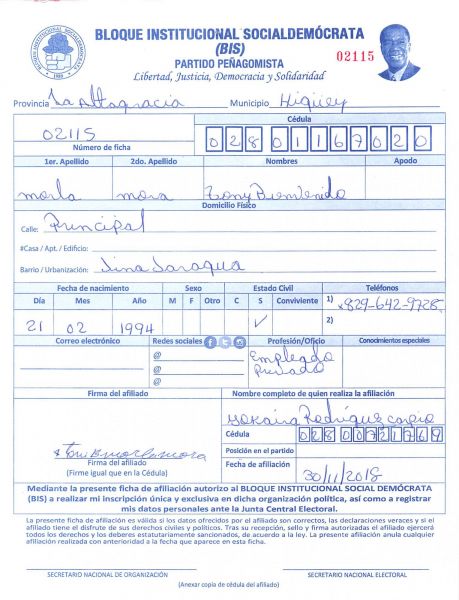 BLOQUE INSTITUCIONAL SOCIALDEMÓCRATA
(BIS)
PARTIDO PEÑAGOMISTA
02115
Libertad, Justicia, Democracia y Solidaridad
Provincia La Altagracia Municipio Higüey
02115
Número de ficha
Cédula
02801167020
1er. Apellido 2do. Apellido Nombres Apodo
morla mora Tony Bienvenido
Domicilio Físico
Calle: Principal
#Casa / Apt. / Edificio:
Barrio / Urbanización:
Fecha de nacimiento Sexo Estado Civil Teléfonos
Día Mes Año M F Otro C S Conviviente 1) 829-642-9728
21 02 1994 ✓ 2)
Correo electrónico Redes sociales Profesión/Oficio Conocimientos especiales
@
@
@
Empleado
Privado
Firma del afiliado Nombre completo de quien realiza la afiliación
Rodríguez
Cédula 02800721769
Posición en el partido
Firma del afiliado
(Firme igual que en la Cédula)
Fecha de afiliación 30/11/2018
Mediante la presente ficha de afiliación autorizo al BLOQUE INSTITUCIONAL SOCIAL DEMÓCRATA
(BIS) a realizar mi inscripción única y exclusiva en dicha organización política, así como a registrar
mis datos personales ante la Junta Central Electoral.
La presente ficha de afiliación es válida si los datos ofrecidos por el afiliado son correctos, las declaraciones veraces y si el
afiliado tiene el disfrute de sus derechos civiles y políticos. Tras su recepción, sello y firma autorizadas el afiliado ejercerá
todos los derechos y los deberes estatutariamente sancionados, de acuerdo a la ley. La presente afiliación anula cualquier
afiliación realizada con anterioridad a la fecha que aparece en esta ficha.
SECRETARIO NACIONAL DE ORGANIZACIÓN SECRETARIO NACIONAL ELECTORAL
(Anexar copia de cédula del afiliado)